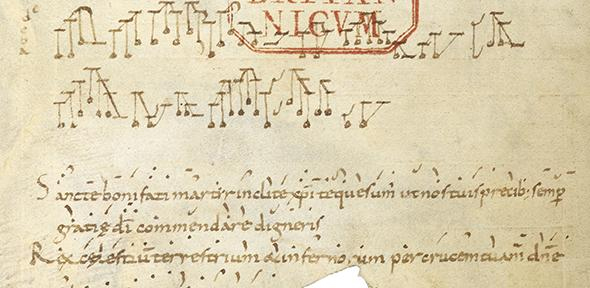 BRITAN
NICVM
Sancte bonifati martyr inclite xp̄i te quesum̄ ut nos tuis precib; semp̄
gratię dī commendare digneris
Rex cęlestiū terrestrium & infernorum per crucem tuam dn̄e